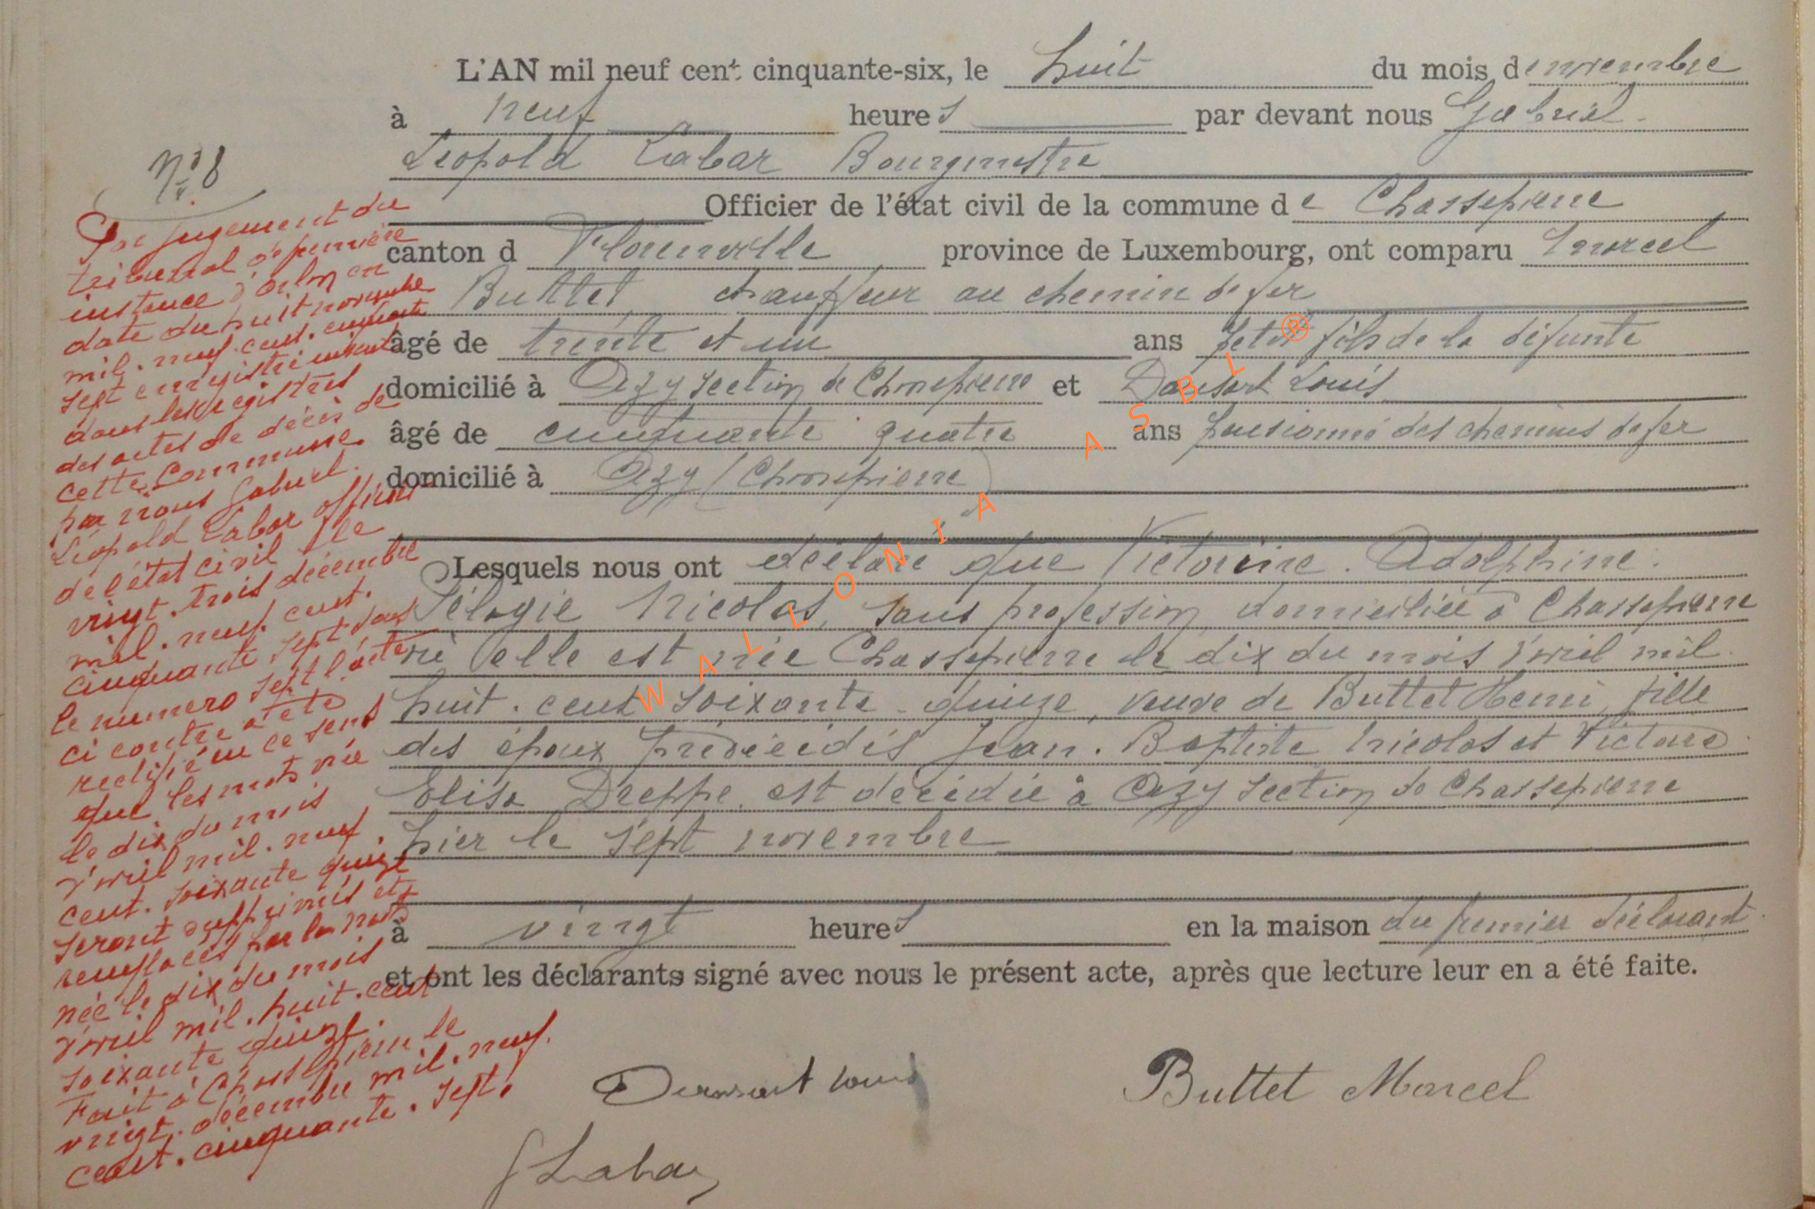 L'AN mil neuf cent cinquante-six, le huit du mois de novembre
à neuf heures par devant nous Gabriel
Léopold Labar Bourgmestre
Officier de l'état civil de la commune de Chassepierre
canton d Florenville province de Luxembourg, ont comparu Marcel
Buttet chauffeur au chemin de fer
âgé de trente et un ans petit fils de la défunte
domicilié à Azy section de Chassepierre et Dansart Louis
âgé de cinquante quatre ans pensionné des chemins de fer
domicilié à Azy (Chassepierre)
Lesquels nous ont déclaré que Victorine. Adolphine.
Pélagie Nicolas, sans profession, domiciliée à Chassepierre
où elle est née Chassepierre le dix du mois d'avril mil
huit. cent soixante-quinze, veuve de Buttet Henri, fille
des époux prédécédés Jean. Baptiste Nicolas et Victoire
Elisa Dreppe, est décédée à Azy section de Chassepierre
hier le sept novembre
à vingt heures en la maison du premier déclarant
et ont les déclarants signé avec nous le présent acte, après que lecture leur en a été faite.
Dansart Louis
Buttet Marcel
G Labar
N° 8
Par jugement du
tribunal de première
instance d'Arlon en
date du huit novembre
mil. neuf cent. cinquante
sept enregistré
dans les registres
des actes de décès de
cette Commune
par nous Gabriel.
Léopold Labar officier
de l'état civil le
vingt. trois décembre
mil. neuf. cent.
cinquante sept sous
le numero sept l'acte
ci contre a été
rectifié en ce sens
que les mots née
le dix du mois
d'avril mil. neuf.
cent. soixante quinze
seront supprimés et
remplacés par les mots
née le dix du mois
d'avril mil. huit. cent
soixante quinze.
Fait à Chassepierre le
vingt. décembre mil. neuf.
cent. cinquante. sept.
WALLONIA ASBL ®